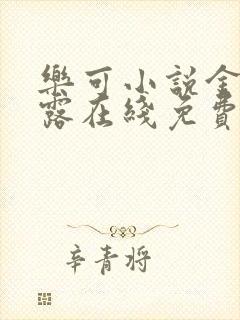 樂可小說金
露在綫免費
辛青将